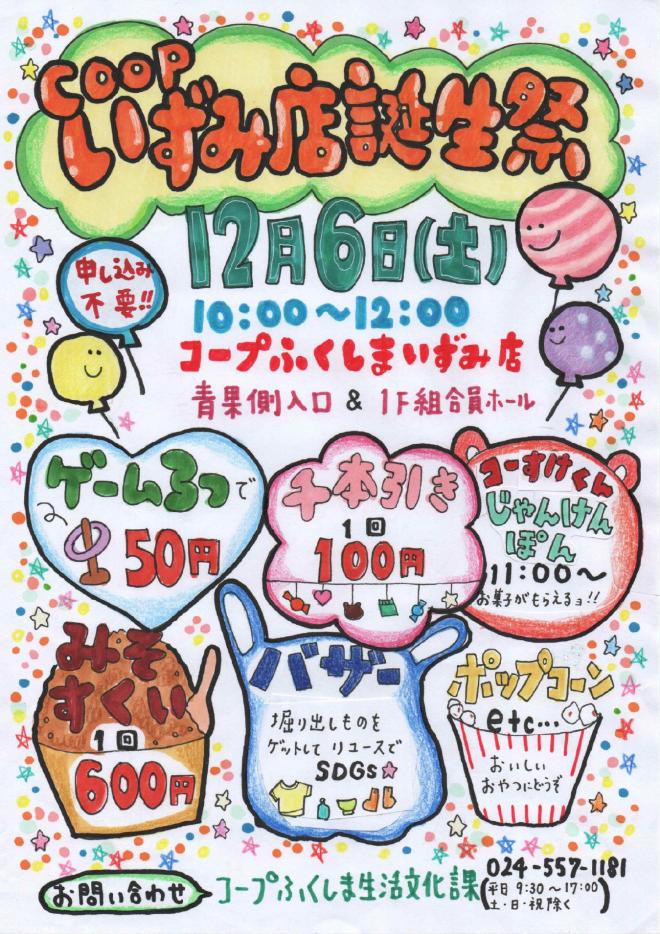 COOP
いずみ店誕生祭
12月6日(土)
申し込み
不要!!
10:00～12:00
コープふくしまいずみ店
青果側入口 & 1F組合員ホール
ゲーム3つで
50円
千本引き
1回
100円
コーすけくん
じゃんけん
ぽん
11:00～
お菓子がもらえるョ!!
みそ
すくい
1回
600円
バザー
掘り出しものを
ゲットして リユースで
SDGs☆
ポップコーン
etc...
おいしい
おやつにどうぞ
お問い合わせ
コープふくしま生活文化課
024-557-1181
(平日 9:30～17:00
土・日・祝除く)